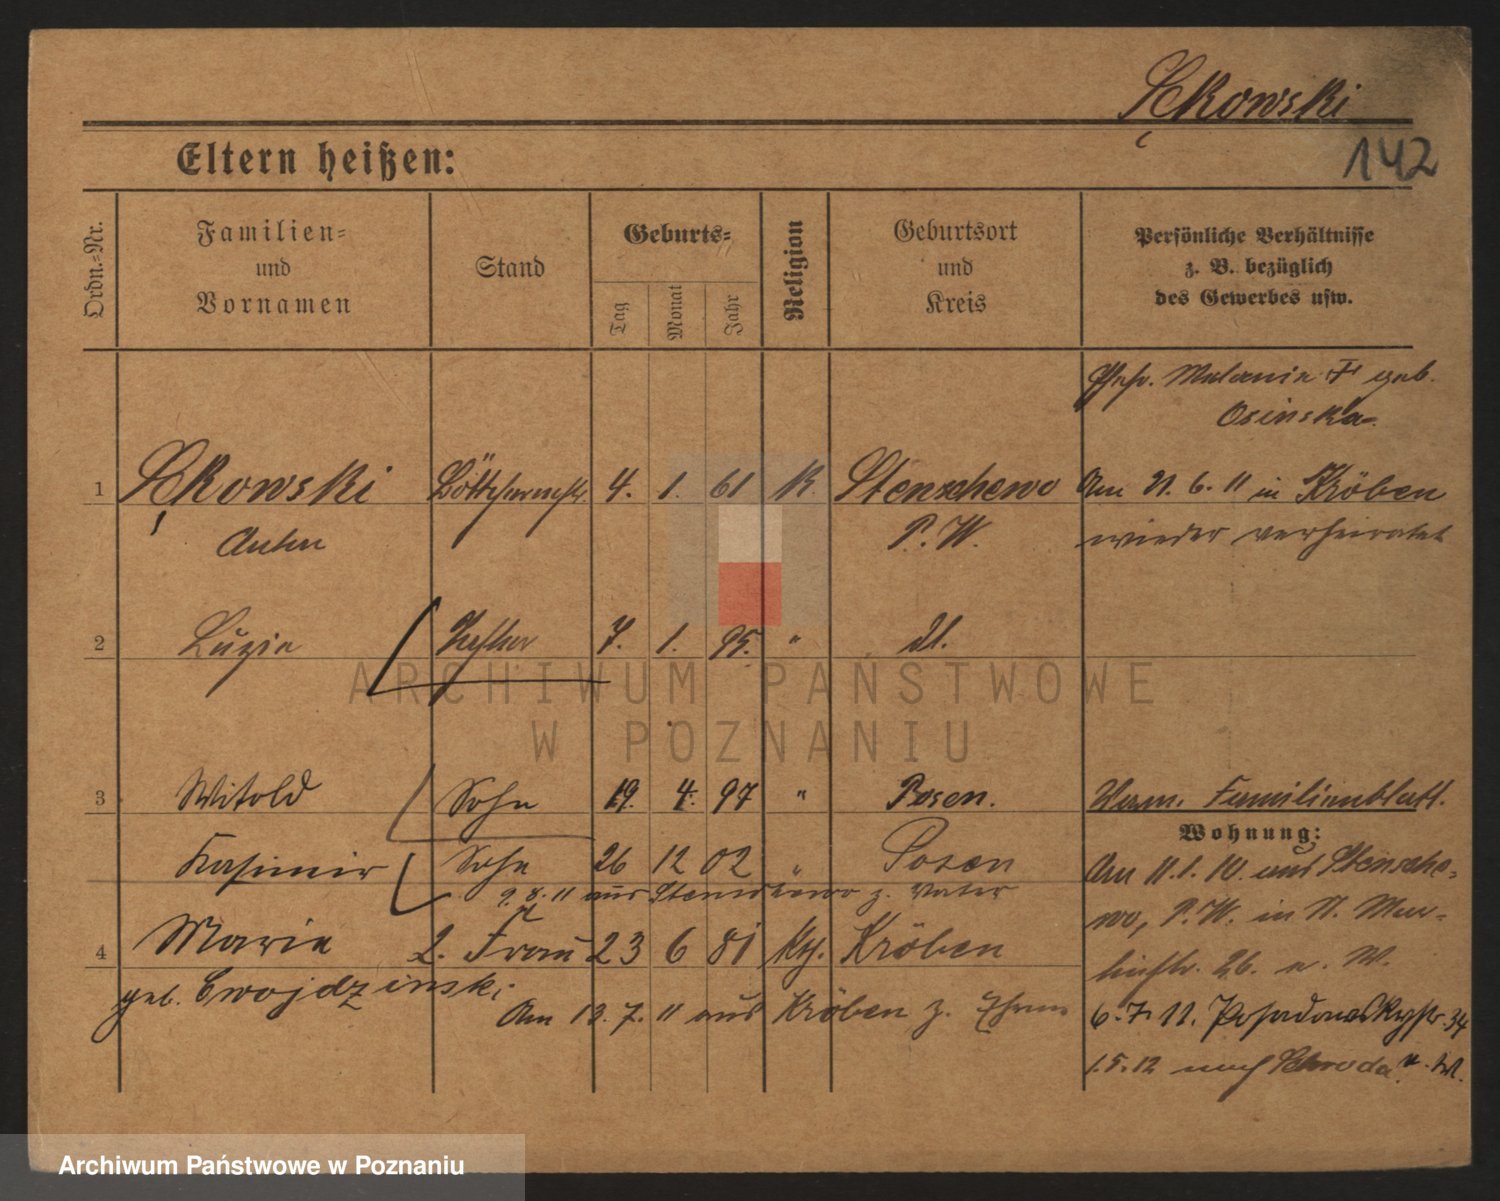 Łękowski
142
Eltern heißen:
Ordn.=Nr.
Familien=
und
Vornamen
Stand
Geburts=
Tag
Monat
Jahr
Religion
Geburtsort
und
Kreis
Persönliche Verhältnisse
z. B. bezüglich
des Gewerbes usw.
Ehefr. Melanie geb.
Osinska
1 Łękowski Böttchermstr. 4. 1. 61 K. Stenschewo Am 21. 6. 11 in Kröben
Anton P. W. wieder verheiratet
2 Luzie Tochter 7. 1. 95. " dt.
3 Witold Sohn 19. 4. 97 " Posen. Familienblatt.
Wohnung:
Kasimir Sohn 26 12 02 " Posen Am 11. 1. 10. aus Stensche=
9. 8. 11 aus Stenschewo z. Vater
wo, P. W. in
4 Marie 2. Frau 23 6 81 kth. Kröben
26. n. W.
geb. Cwojdzinski
Am 13. 7. 11 aus Kröben z. Ehem.
6. 7. 11. Posadowskystr. 34
1. 5. 12 nach Schroda
ARCHIWUM PAŃSTWOWE
W POZNANIU
Archiwum Państwowe w Poznaniu